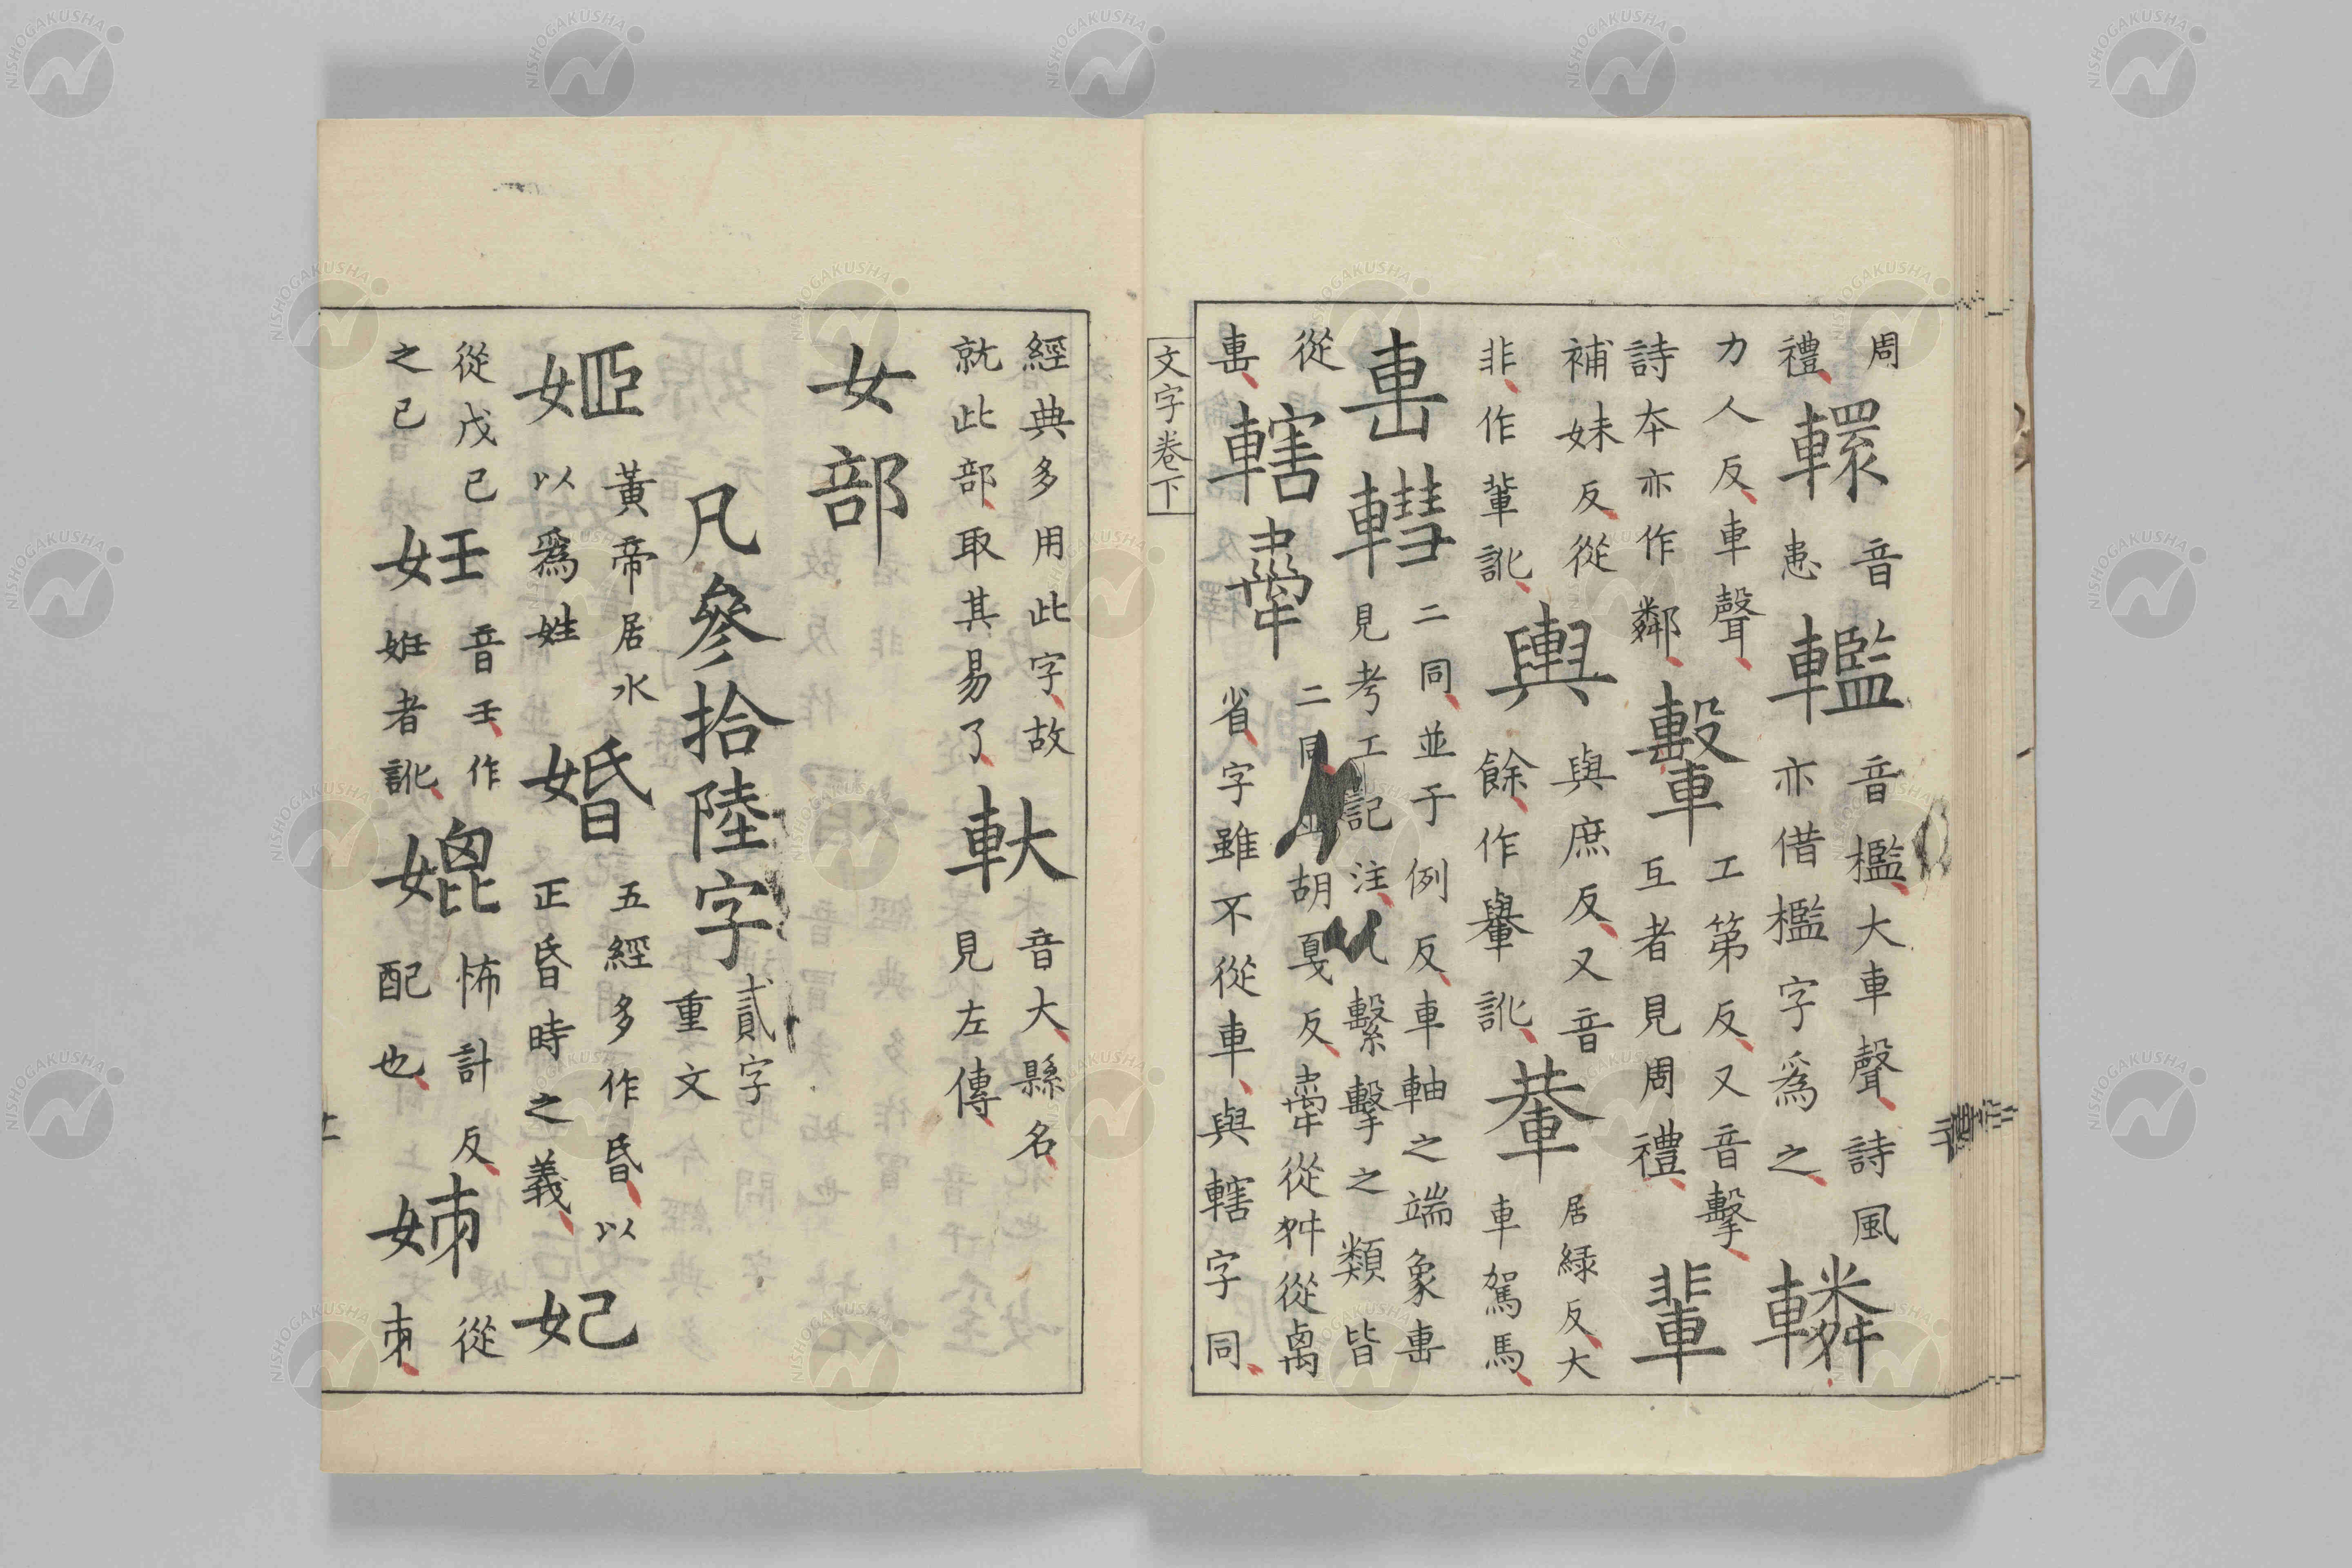 周禮轘音患轞音檻大車聲詩風亦借檻字爲之轔
力人反車聲詩夲亦作鄰轚工第反又音擊互者見周禮輩
補妹反從非作軰訛輿與庶反又音餘作轝訛輂居緑反大車駕馬
軎轊二同並于例反車軸之端象軎見考工記注凡繫擊之類皆
從軎轄舝二同並胡戛反舝從舛從禼省字雖不從車與轄字同
文字卷下
經典多用此字故就此部取其易了軑音大縣名見左傳
女部
凡參拾陸字貳字重文
姬黃帝居水以爲姓婚五經多作昬以正昏時之義妃
從戊己之己妊音壬作姙者訛媲怖計反配也姊從𠂔